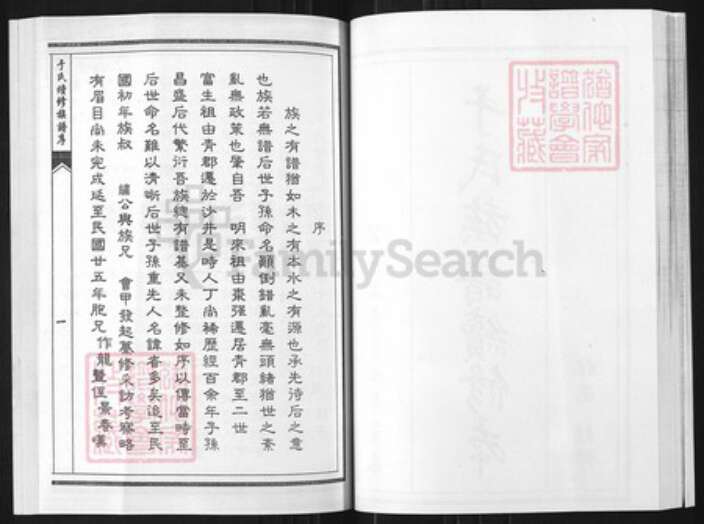 于氏續修族譜序
序
族之有譜猶如木之有本水之有源也承先待后之意
也族若無譜后世子孫命名顛倒錯亂毫無頭緒猶世之紊
亂無政策也肇自吾 明來祖由棗强遷居青郡至二世
富生祖由青郡遷於沙井是時人丁尚稀歷經百余年子孫
昌盛后代繁衍吾族總有譜甚又未整修如序以傳當時至
后世命名難以清晰后世子孫重先人名諱者多矣迨至民
國初年族叔 公與族兄 會甲發起纂修采訪考察略
有眉目尚未完成延至民國廿五年胞兄作龍暨侄景春漢
一
FamilySearch
猶他家
譜學會
收藏